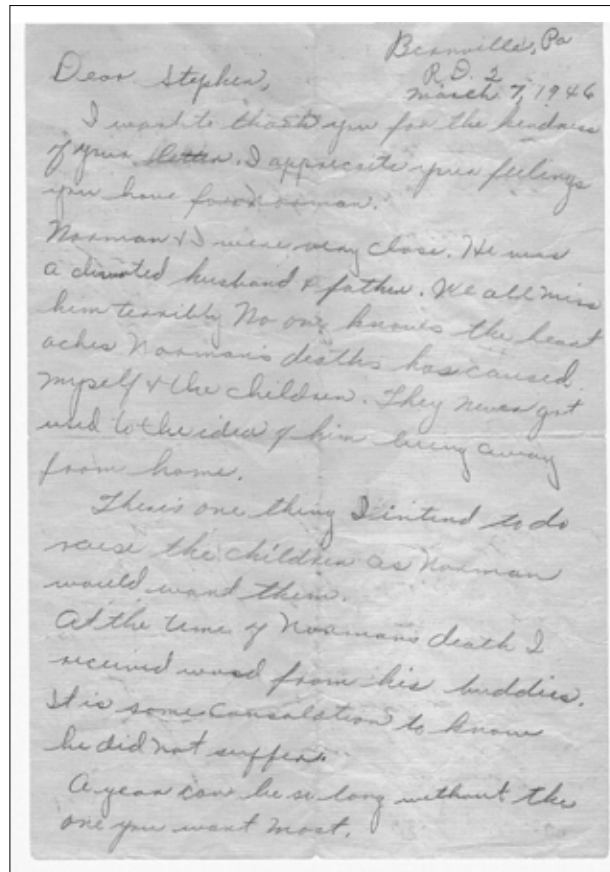 Bernville, Pa
R.D. 2
March 7, 1946
Dear Stephen,
I want to thank you for the kindness
of your letter. I appreciate your feelings
you have for Norman.
Norman & I were very close. He was
a divoted husband & father. We all miss
him terribly No one knows the heart
aches Norman's deaths has caused
myself & the children. They never got
used to the idea of him being away
from home.
Theris one thing I intend to do
raise the children as Norman
would want them.
At the time of Normans death I
received word from his buddies.
It is some consalation to know
he did not suffer.
A year can be so long without the
one you want most.